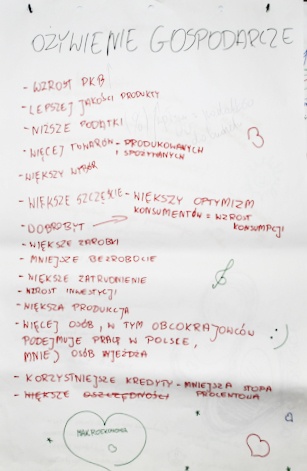 OŻYWIENIE GOSPODARCZE
- WZROST PKB
- LEPSZEJ JAKOŚCI PRODUKTY
- NIŻSZE PODATKI
- WIĘCEJ TOWARÓW - PRODUKOWANYCH
I SPOŻYWANYCH
- WIĘKSZY WYBÓR
- WIĘKSZE SZCZĘŚCIE - WIĘKSZY OPTYMIZM
KONSUMENTÓW = WZROST
KONSUMPCJI
- DOBROBYT
- WIĘKSZE ZAROBKI
- MNIEJSZE BEZROBOCIE
- WIĘKSZE ZATRUDNIENIE
- WZROST INWESTYCJI
- WIĘKSZA PRODUKCJA
- WIĘCEJ OSÓB, W TYM OBCOKRAJOWCÓW :)
PODEJMUJE PRACĘ W POLSCE,
MNIEJ OSÓB WYJEŻDŻA
- KORZYSTNIEJSZE KREDYTY - MNIEJSZA STOPA
PROCENTOWA
- WIĘKSZE OSZCZĘDNOŚCI
MAKROEKONOMIA